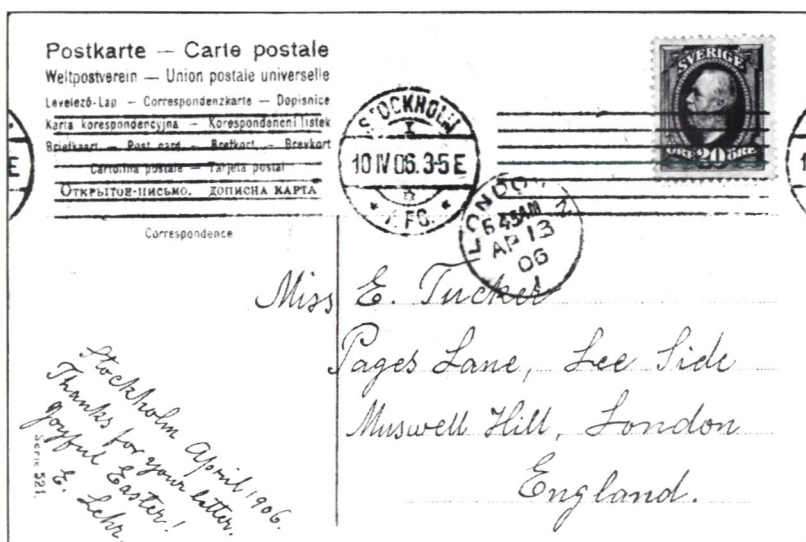 Postkarte — Carte postale
Weltpostverein — Union postale universelle
Levelező-Lap — Correspondenzkarte — Dopisnice
Karta korespondencyjna — Korespondenční lístek
Briefkaart — Post card — Brefkort — Brevkort
Cartolina postale — Tarjeta postal
Открытое-письмо. дописна карта
Correspondence
SVERIGE
ÖRE 20 ÖRE
STOCKHOLM
10 IV 06. 3-5 E
LONDON
5 45 AM
AP 13
06
Miss E. Tucker
Pages Lane, Lee Side
Muswell Hill, London
England.
Stockholm April 1906.
Thanks for your letter.
Joyful Easter!
E. Lehr.
Serie 521.